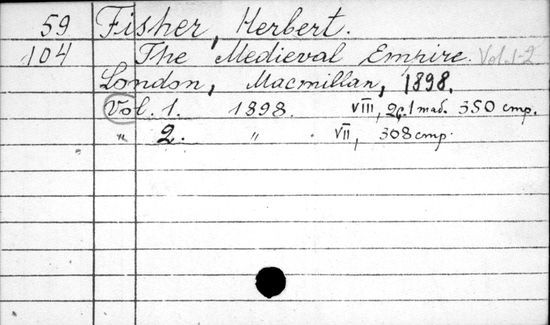 59 Fisher, Herbert.
104 The Medieval Empire. Vol. 1-2
London, Macmillan, 1898.
Vol. 1. 1898. VIII, 2с. 1 таб. 350 стр.
" 2. " . VII, 308 стр.